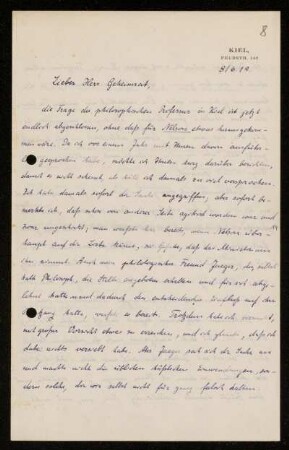 8
KIEL,
8/6.19.
Lieber Herr Geheimrat,
die Frage des philosophischen Professors in Kiel ist jetzt
endlich abgeschlossen, ohne daß für etwas herausgekom-
men wäre. Da ich vor einem Jahr mit Ihnen davon ausführ-
lich gesprochen habe, möchte ich Ihnen kurz darüber berichten,
damit es nicht scheint, als hätte ich damals zu viel versprochen.
Ich habe damals sofort die Sache angegriffen, aber sofort be-
merkte ich, daß schon von anderer Seite agitiert worden war und
zwar ungeschickt; man wußte hier bereits,
haupt auf die Liste käme, daß das Ministerium
ihn nimmt. Auch mein philologischer Freund Jaeger, der selbst
halb Philosoph, die Stelle angeboten erhalten und für sich abge-
lehnt hatte und dadurch den entscheidenden Einfluß auf den
gang hatte, wußte es bereits. Trotzdem habe ich versucht,
mit großer Vorsicht etwas zu erreichen, und ich glaube, daß ich
dabei nichts versucht habe. Aber Jaeger sah sich die Sache an
und machte nicht die üblichen Einwendungen, son-
dern solche, die wir selbst nicht für ganz falsch halten